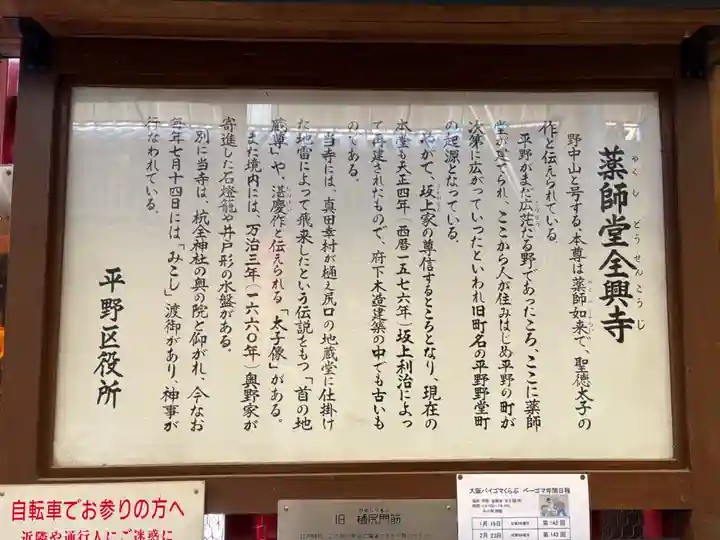 薬師堂全興寺
やくしどうせんこうじ
野中山と号する。本尊は薬師如来で、聖徳太子の
作と伝えられている。
平野がまだ広茫たる野であったころ、ここに薬師
堂が建てられ、ここから人が住みはじめ平野の町が
次第に広がっていったといわれ旧町名の平野野堂町
の起源となっている。
やがて、坂上家の尊信するところとなり、現在の
本堂も天正四年(西暦一五七六年)坂上利治によっ
て再建されたもので、府下木造建築の中でも古いも
のである。
当寺には、真田幸村が樋え尻口の地蔵堂に仕掛け
た地雷によって飛来したという伝説をもつ「首の地
蔵尊」や、湛慶作と伝えられる「太子像」がある。
また境内には、万治三年(一六六〇年)奥野家が
寄進した石燈籠や井戸形の水盤がある。
別に当寺は、杭全神社の奥の院と仰がれ、今なお
毎年七月十四日には「みこし」渡御があり、神事が
行なわれている。
平野区役所
自転車でお参りの方へ
近隣や通行人にご迷惑に
旧 樋尻門筋
大阪ベイゴマくらぶ ベーゴマ年間日程
1月19日
第142回
2月23日
第143回